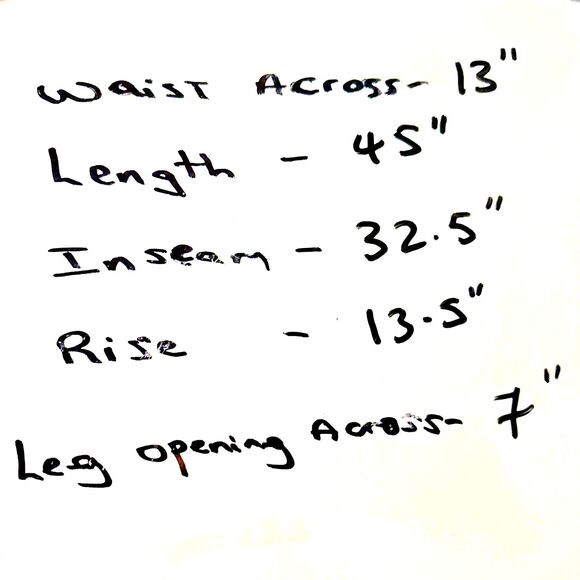 Waist Across- 13"
Length - 45"
Inseam - 32.5"
Rise - 13.5"
Leg opening Across- 7"